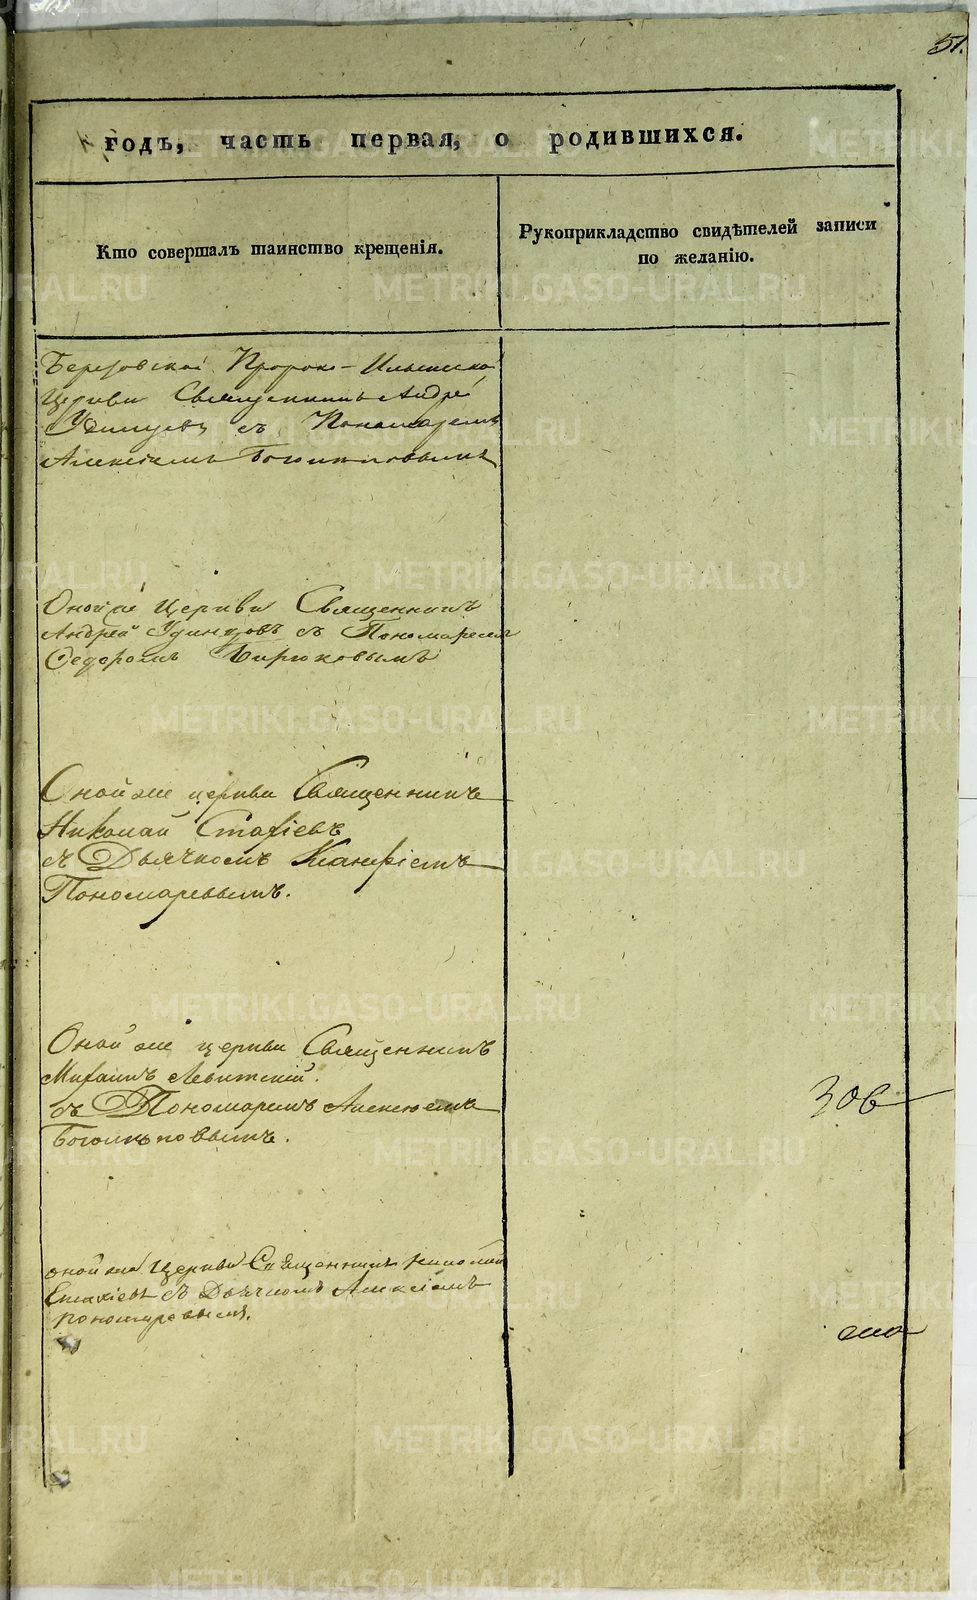 51.
годъ, часть первая, о родившихся.
Кто совершалъ таинство крещенія.
Рукоприкладство свидѣтелей записи
по желанію.
Березовской Пророко-Ильинской
Церкви Священникъ Андрей
Удинцовъ съ Пономаремъ
Алексѣемъ
Оной же Церкви Священникъ
Андрей Удинцовъ съ Пономаремъ
Ѳедоромъ Бирюковымъ
Оной же церкви Священникъ
Николай Стахіевъ
съ Дьячкомъ
Пономаревымъ.
Оной же церкви Священникъ
Михаилъ Левитскій.
съ Пономаремъ Алексеемъ
Оной же Церкви Священникъ Николай
Стахіевъ съ Дьячкомъ Алексіемъ
Пономаревымъ.
METRIKI.GASO-URAL.RU